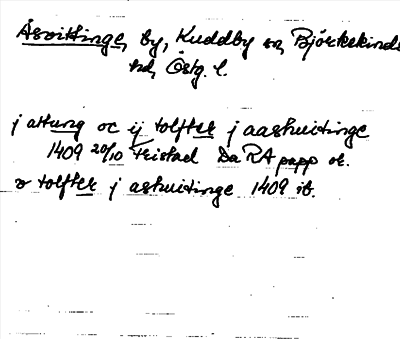 Åsvittinge, by, Kuddby sn, Björkekinds
hd, Östg. l.
j attung oc ij tolfter j aashuitinge
1409 20/10 Ysistad Da RA papp or.
tolfter j ashuitinge 1409 ib.